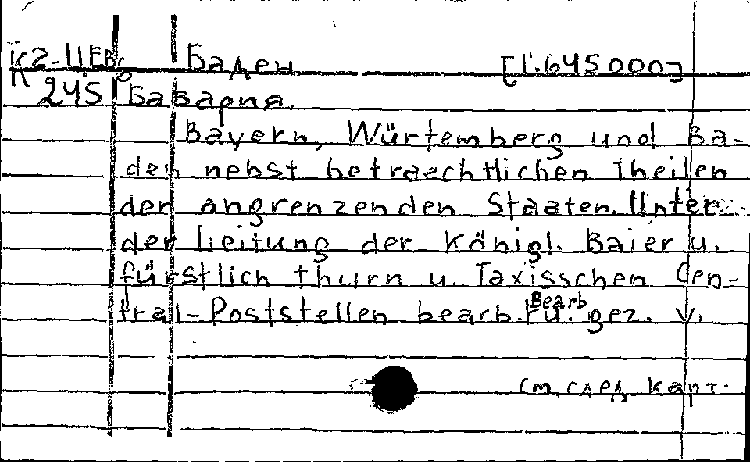 К2-11Eв Баден [1:645000]
245 Бавария.
Bayern, Würtemberg und Ba-
den nebst betraechtlichen Theilen
der angrenzenden Staaten. Unter
der Leitung der Königl. Baier u.
fürstlich thurn u. Taxisschen Cen-
tral-Poststellen bearb. u. gez. v.
Bearb
см. след. карт.